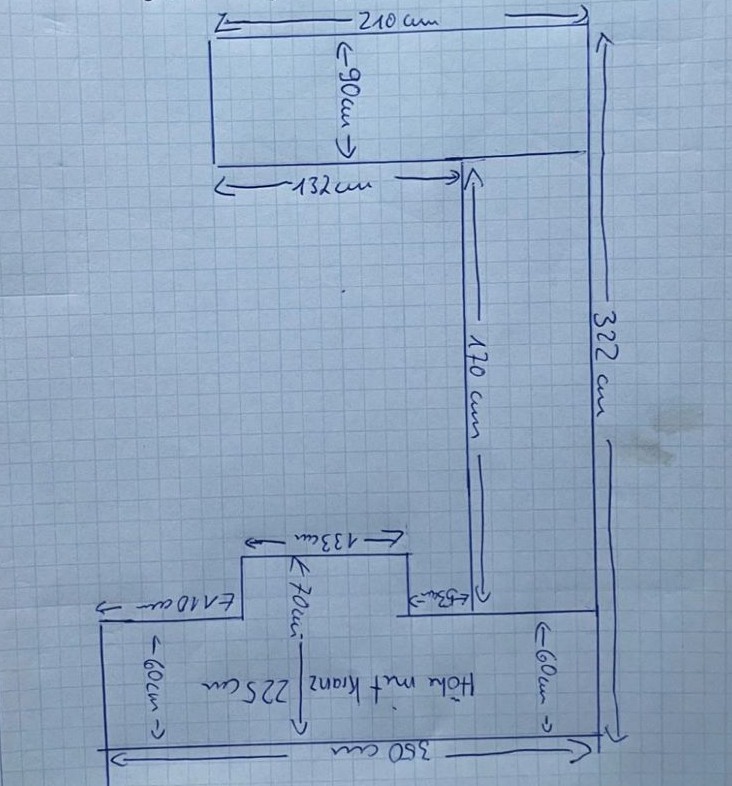 210 cm
90cm
132cm
322 cm
170 cm
133cm
110 cm
53cm
70cm
60cm
60cm
Höhe mit Kranz 225 cm
350 cm